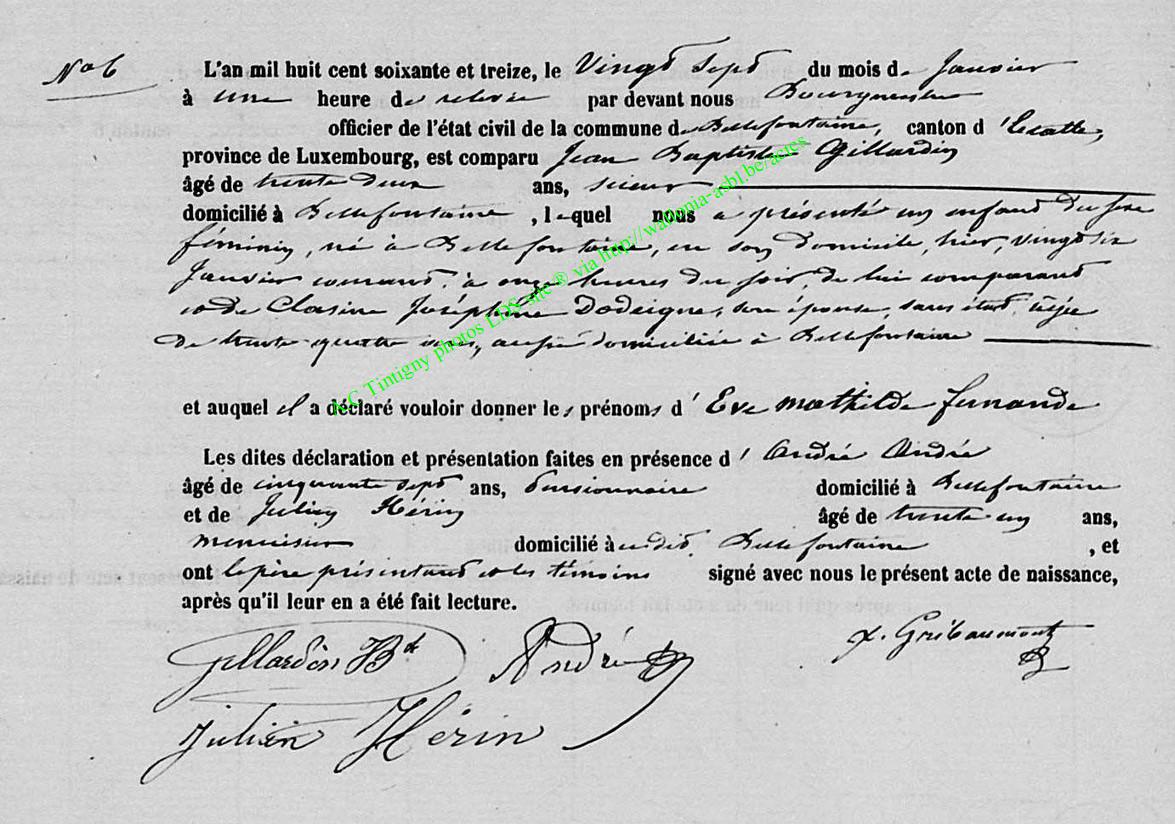 No 6
L'an mil huit cent soixante et treize, le Vingt Sept du mois de Janvier
à une heure de relevée par devant nous Bourgmestre
officier de l'état civil de la commune de Bellefontaine, canton d'Etalle,
province de Luxembourg, est comparu Jean Baptiste Gillardin
âgé de trente deux ans, scieur
domicilié à Bellefontaine, lequel nous a présenté un enfant du sexe
féminin, né à Bellefontaine, en son domicile, hier, vingt six
Janvier courant, à onze heures du soir, de lui comparant
et de Joséphine Dodeigne, son épouse, sans état, âgée
de trente-quatre ans, aussi domiciliée à Bellefontaine
et auquel il a déclaré vouloir donner les prénoms d'Eve Mathilde Fernande
Les dites déclaration et présentation faites en présence d'André André
âgé de cinquante sept ans, Pensionnaire domicilié à Bellefontaine
et de Julien Hérin âgé de trente un ans,
menuisier domicilié à udit Bellefontaine, et
ont le père présentant et les témoins signé avec nous le présent acte de naissance,
après qu'il leur en a été fait lecture.
Gillardin JBte André
Gribaumont
Julien Hérin
A.C Tintigny photos LDS site ® via http://wallonia-asbl.be/actes